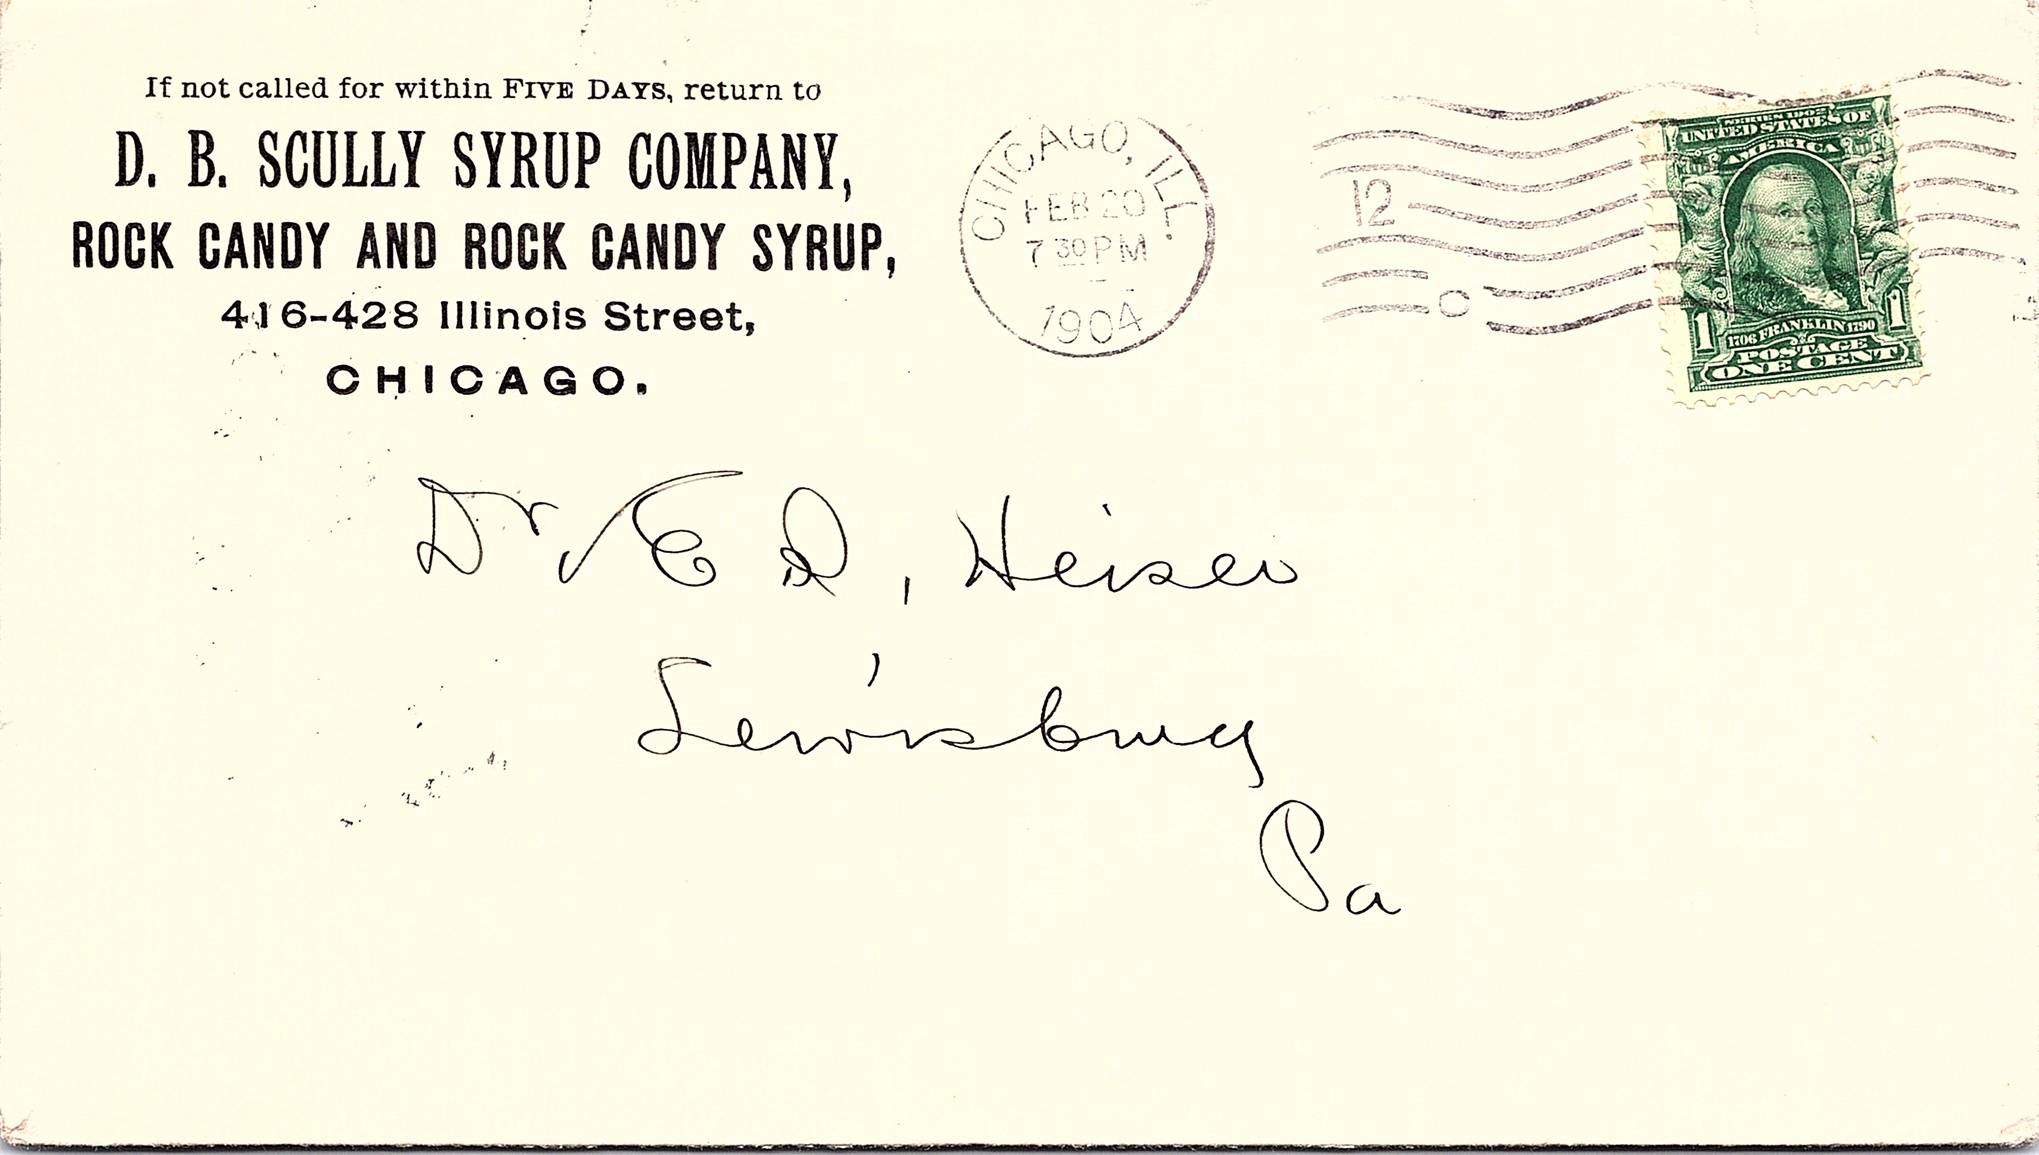 If not called for within FIVE DAYS, return to
D. B. SCULLY SYRUP COMPANY,
ROCK CANDY AND ROCK CANDY SYRUP,
416-428 Illinois Street,
CHICAGO.
CHICAGO, ILL.
FEB 20
7 30 PM
1904
12
C
SERIES 1902
UNITED STATES OF
AMERICA
1 1
1706 FRANKLIN 1790
POSTAGE
ONE CENT
Dr E D, Heiser
Lewisburg
Pa